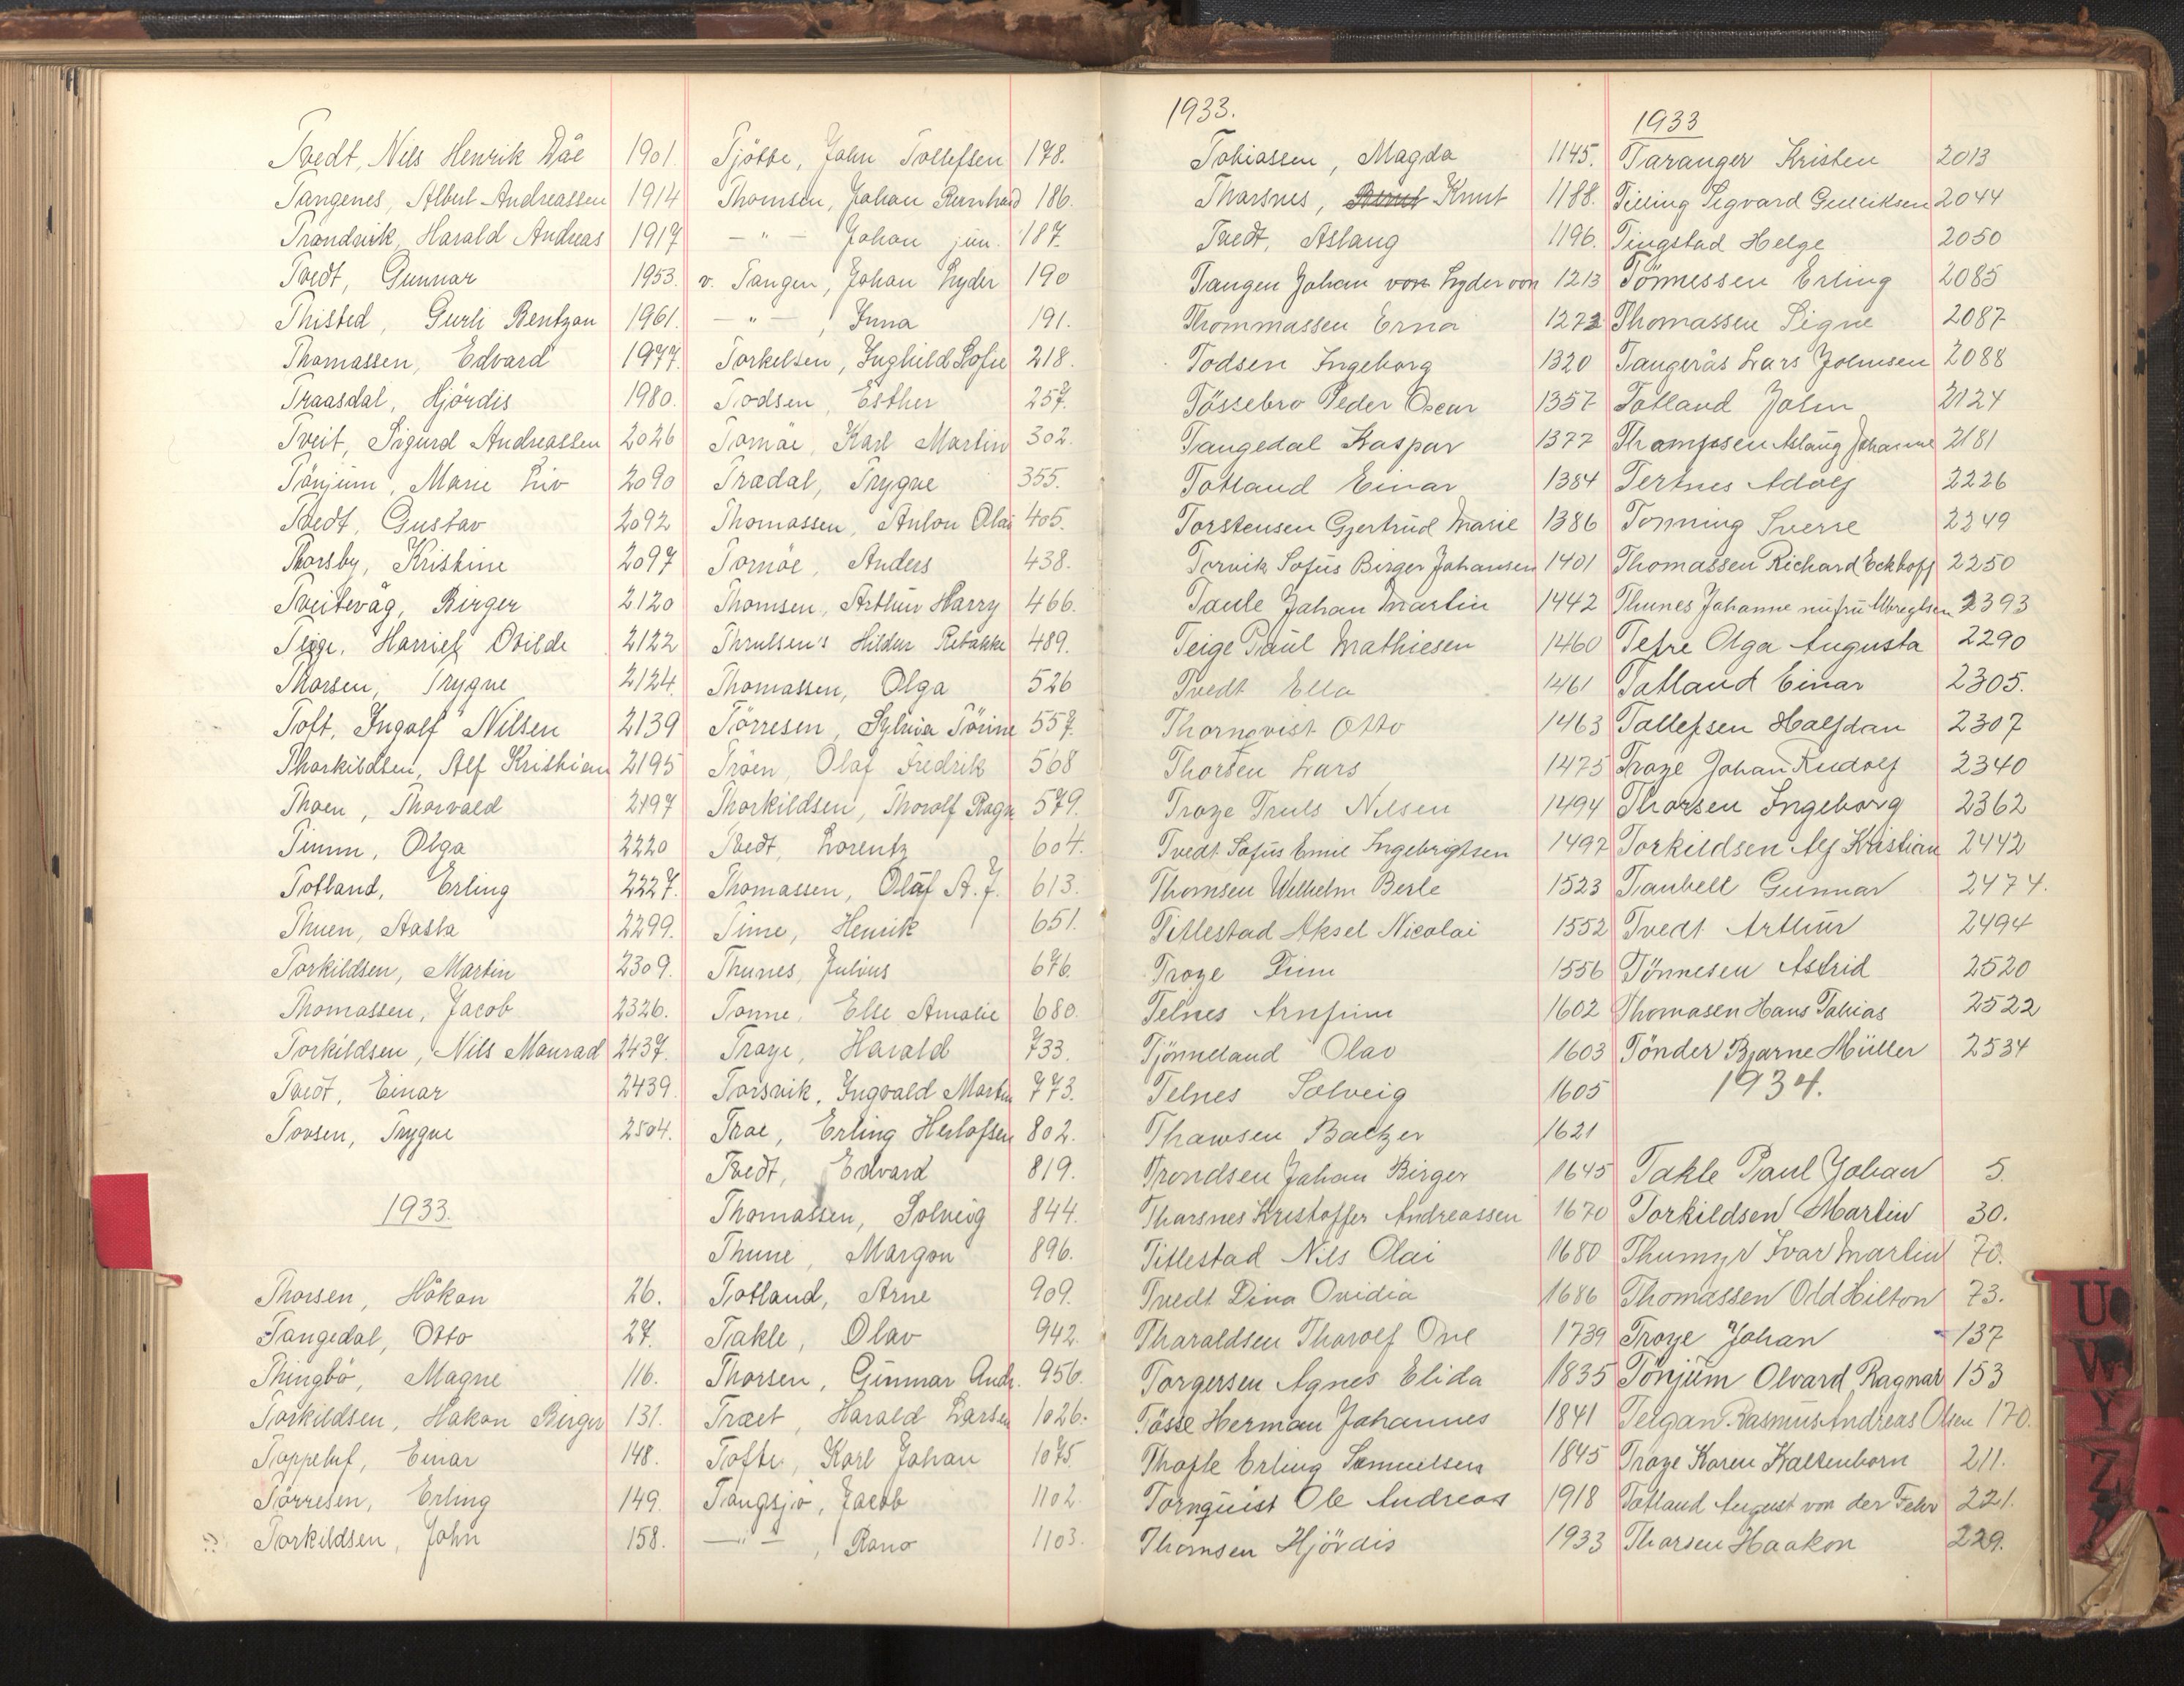 Tvedt, Nils Henrik Dåe 1901.
Tangenes, Albert Andreassen 1914
Trandvik, Harald Andreas 1917
Tvedt, Gunnar 1953.
Thisted, Gurli Bentzon 1961.
Thomassen, Edvard 1977.
Traasdal, Hjördis 1980.
Tveit, Sigurd Andreassen 2026
Tönjum, Marie Liv 2090
Tvedt, Gustav 2092
Thorsby, Kristine 2097
Tveitevåg, Birger 2120
Teige, Harriet Ovilde 2122
Thorsen, Trygve 2124.
Toft, Ingolf Nilsen 2139
Thorkildsen, Alf Kristian 2195
Thoen, Thorvald 2197
Timm, Olga 2220
Totland, Erling 2227.
Thuen, Aasta 2299.
Torkildsen, Martin 2309.
Thomassen, Jacob 2326.
Torkildsen, Nils Monrad 2437.
Tvedt, Einar 2439.
Tovsen, Trygve 2504.
1933.
Thorsen, Håkon 26.
Tangedal, Otto 27.
Thingbö, Magne 116.
Torkildsen, Håkon Birger 131.
Toppeluf, Einar 148.
Törresen, Erling 149.
Torkildsen, John 158.
Tjötte, John Tollefsen 178.
Thomsen, Johan Bernhard 186.
— " — Johan jun. 187.
v. Tangen, Johan Lyder 190
— " — , Inna 191.
Torkelsen, Inghild Sofie 218.
Todsen, Esther 257.
Tomåe, Karl Martin 302.
Tradal, Trygve 355.
Thomassen, Anton Olai 405.
Tornöe, Anders 438.
Thomsen, Arthur Harry 466.
Thrulsen's Hildur Rebekke 489.
Thomassen, Olga 526
Törresen, Sylvia Törine 557.
Tröen, Olaf Fredrik 568
Thorkildsen, Thorolf Ragn 579.
Tvedt, Lorentz 604.
Thomassen, Olaf A. J. 613.
Time, Henrik 651.
Thunes, Julius 676.
Tonne, Else Amalie 680.
Troye, Harald 733.
Torsvik, Ingvald Martin 773.
Troe, Erling Herlofsen 802.
Tvedt, Edvard 819.
Thomassen, Solveig 844.
Thune, Margon 896.
Totland, Arne 909.
Takle, Olav 942.
Thorsen, Gunnar Andr. 956.
Træet, Harald Larsen 1026.
Tofte, Karl Johan 1075.
Tangsjö, Jacob 1102.
— " — , Rono 1103.
1933.
Tobiassen, Magda 1145.
Tharsnes, Knut 1188.
Tvedt, Aslaug 1196.
Tangen Johan von Lyder von 1213
Thommassen Erna 1272
Todsen Ingeborg 1320
Tössebro Peder Oscar 1357
Tangedal Kaspar 1377
Totland Einar 1384
Torstensen Gjertrud Marie 1386
Torvik Sofus Birger Johansen 1401
Taule Johan Martin 1442
Teige Paul Mathiesen 1460
Tvedt Ella 1461
Thornqvist Otto 1463
Thorsen Lars 1475
Troye Truls Nilsen 1494
Tvedt Sofus Emil Ingebrigtsen 1497
Thomsen Wilhelm Berle 1523
Titlestad Aksel Nicolai 1552
Troye Finn 1556
Telnes Arnfinn 1602
Tjönneland Olav 1603
Telnes Solveig 1605
Thawsen Baltzer 1621
Trondsen Johan Birger 1645
Tharsnes Kristoffer Andreassen 1670
Titlestad Nils Olai 1680
Tvedt Dina Ovidia 1686
Tharaldsen Tharolf One 1739
Torgersen Agnes Elida 1835
Tösse Herman Johannes 1841
Thofte Erling Samuelsen 1845
Tornquist Ole Andreas 1918
Thomsen Hjördis 1933
1933
Taranger Kristen 2013
Tilling Sigvard Gulliksen 2044
Tingstad Helge 2050
Tönnessen Erling 2085
Thomassen Signe 2087
Tangerås Lars Johnsen 2088
Totland John 2124
Thompsen Aslaug Johanne 2181
Tertnes Adolf 2226
Tonning Sverre 2249
Thomassen Richard Eckhoff 2250
Thunes Johanne nu fru Ulvregtsen 2393
Tefre Olga Augusta 2290
Totland Einar 2305.
Tollefsen Halfdan 2307
Troye Johan Rudolf 2340
Thorsen Ingeborg 2362
Torkildsen Alf Kristian 2442
Taubell Gunnar 2474.
Tvedt Arthur 2494
Tönnesen Astrid 2520
Thomasen Hans Tobias 2522
Tönder Bjarne Müller 2534
1934.
Takle Paul Johan 5.
Torkildsen Martin 30.
Thumyr Ivar Martin 70.
Thomassen Odd Hilton 73.
Troye Johan 137
Tönjum Olvard Ragnar 153
Telgan Rasmus Andreas Olsen 170.
Troye Karen Kaltenborn 211.
Totland August von der Fehr 221.
Thorsen Haakon 229.
U
W
Y
Z